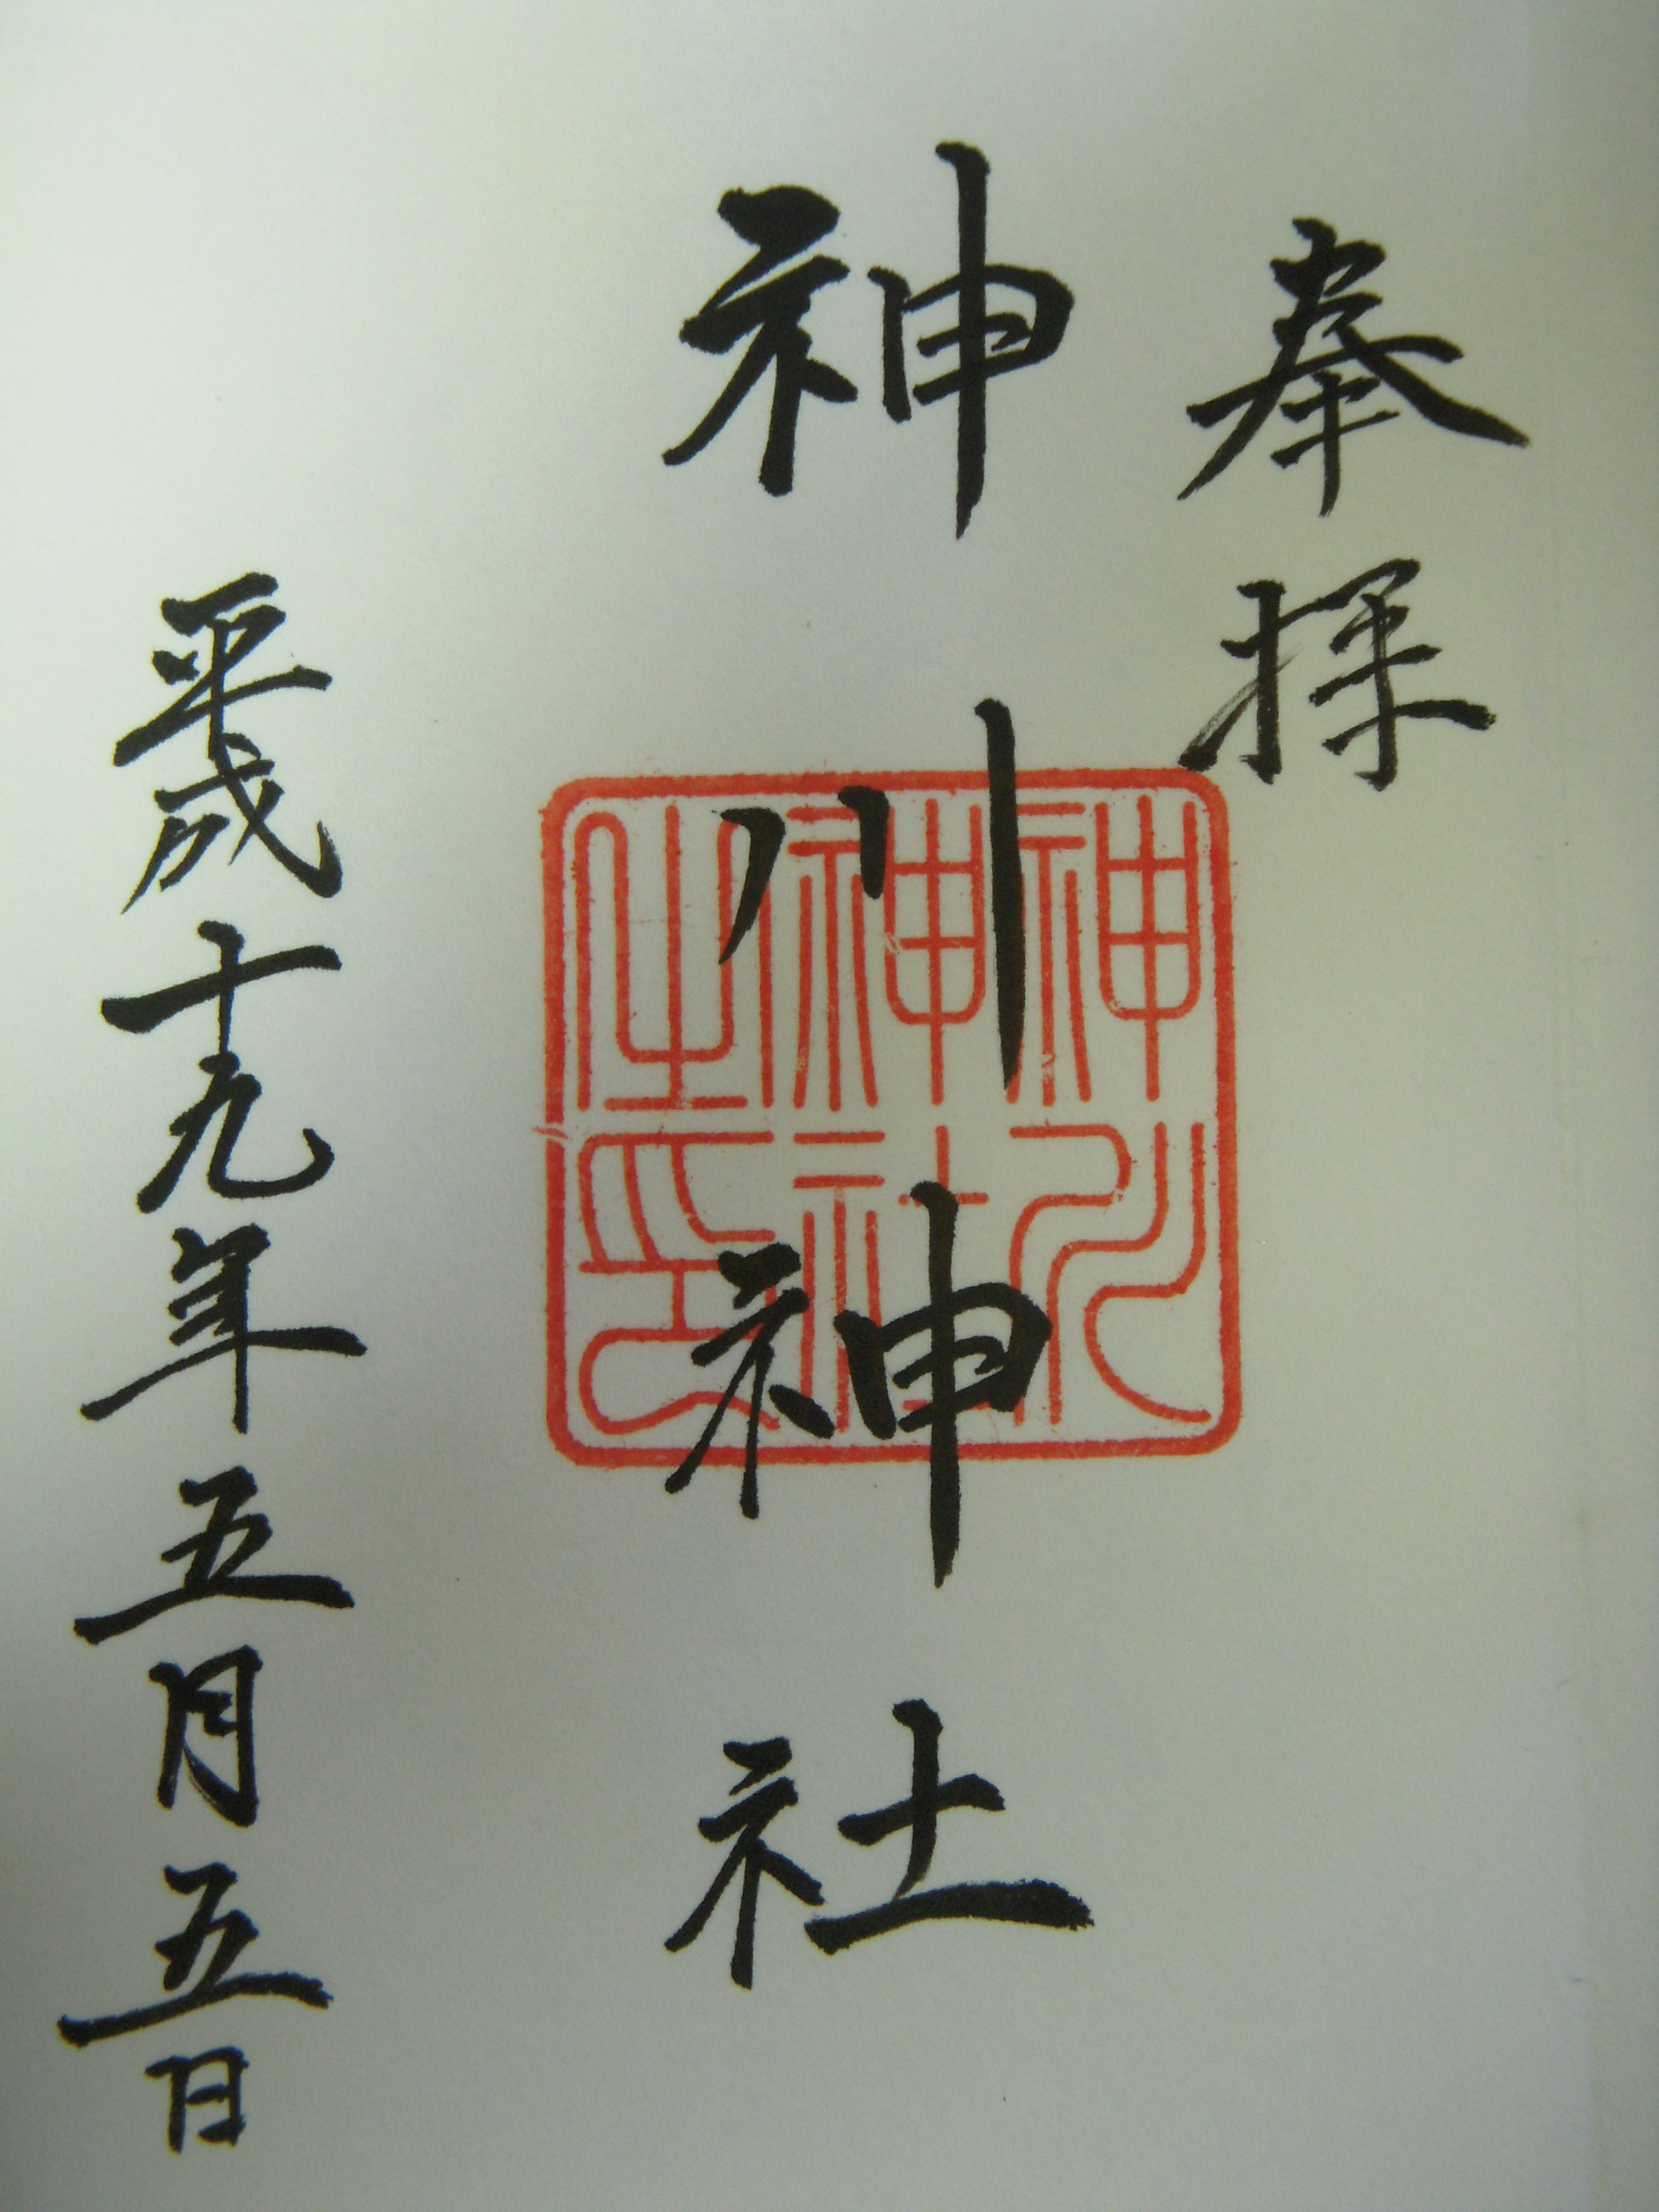 奉拝
神川神社
神川
神社
之印
平成十九年五月五日